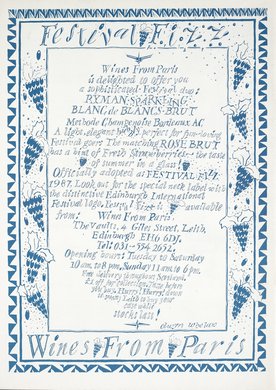 Festival Fizz
Wines From Paris
is delighted to offer you
a sophisticated Festival duo:
RYMAN SPARKLING
BLANC de BLANCS BRUT
Methode Champenoise Bordeaux AC.
A light, elegant perfect for fun-loving
Festival goers The matching ROSE BRUT
has a hint of Fresh Strawberries - the taste
of summer in a glass!
Officially adopted as FESTIVAL FIZZ
1987. Look out for the special neck label with
the distinctive Edinburgh International
Festival logo. Festival Fizz is available
from: Wines From Paris
The Vaults, 4 Giles Street, Leith,
Edinburgh EH6 6DJ.
Tel: 031-554 2652.
Opening hours: Tuesday to Saturday
10am to 8pm, Sunday 11am to 6pm.
Free delivery throughout Scotland.
you buy. Hurry! Hurry! down
to sunny Leith to buy your
case while
stocks last!
Wines From Paris